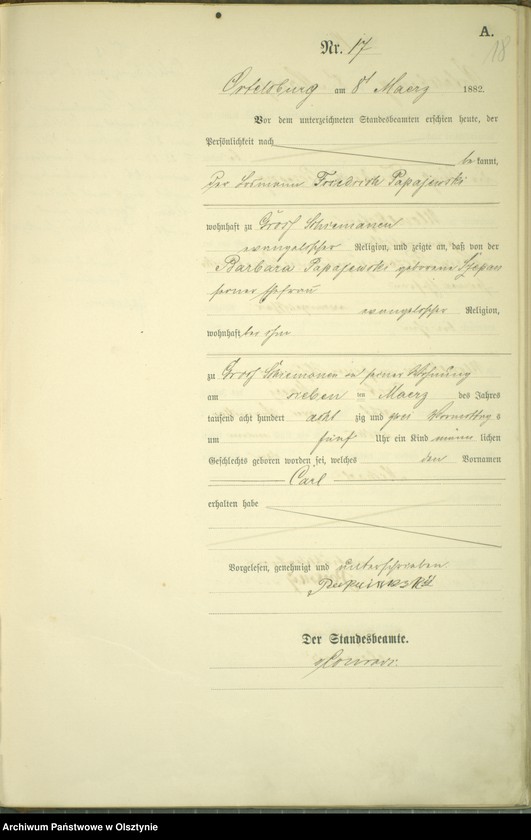 A.
18
Nr. 17
Ortelsburg am 8t Maerz 1882.
Vor dem unterzeichneten Standesbeamten erschien heute, der
Persönlichkeit nach
be kannt,
der Losmann Friedrich Papajewski
wohnhaft zu Gross Schiemanen
evangelischer Religion, und zeigte an, daß von der
Barbara Papajewski geborene
seiner Ehefrau
evangelischer Religion,
wohnhaft bei ihm
zu Gross Schiemanen in seiner Wohnung
am sieben ten Maerz des Jahres
tausend acht hundert acht zig und zwei Vormittags
um fünf Uhr ein Kind männ lichen
Geschlechts geboren worden sei, welches den Vornamen
Carl
erhalten habe
Vorgelesen, genehmigt und unterschrieben
Der Standesbeamte.
Archiwum Państwowe w Olsztynie